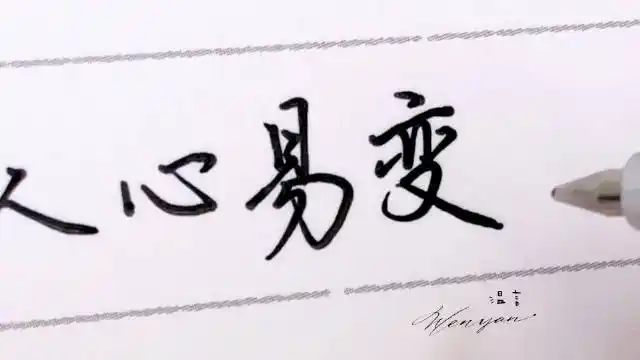 人心易变
温言
Wenyan.